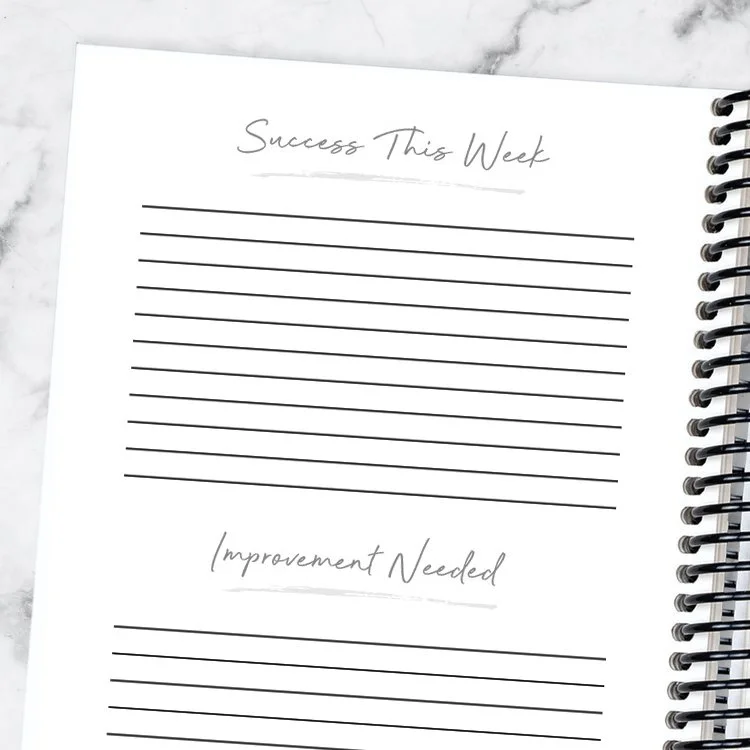 Success This Week
Improvement Needed